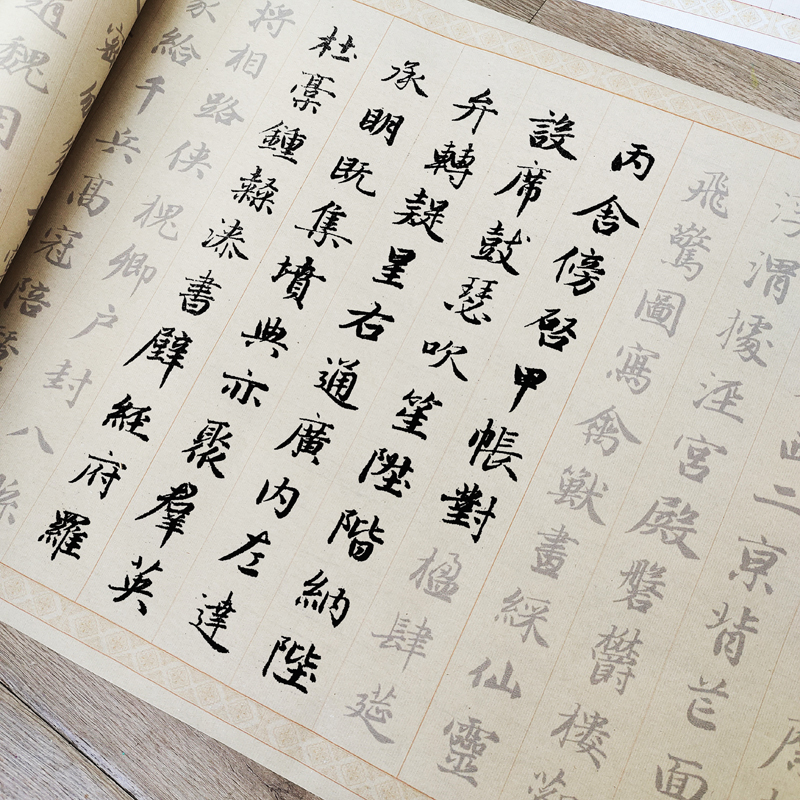 二京背芒面
浮渭據涇宮殿磐鬱樓觀
飛驚圖寫禽獸畫綵仙靈
丙舍傍啓甲帳對楹肆筵
設席鼓瑟吹笙陞階納陛
弁轉疑星右通廣内左達
承明既集墳典亦聚羣英
杜稾鍾隸漆書壁經府羅
將相路俠槐卿户封八縣
家給千兵高冠陪
魏困